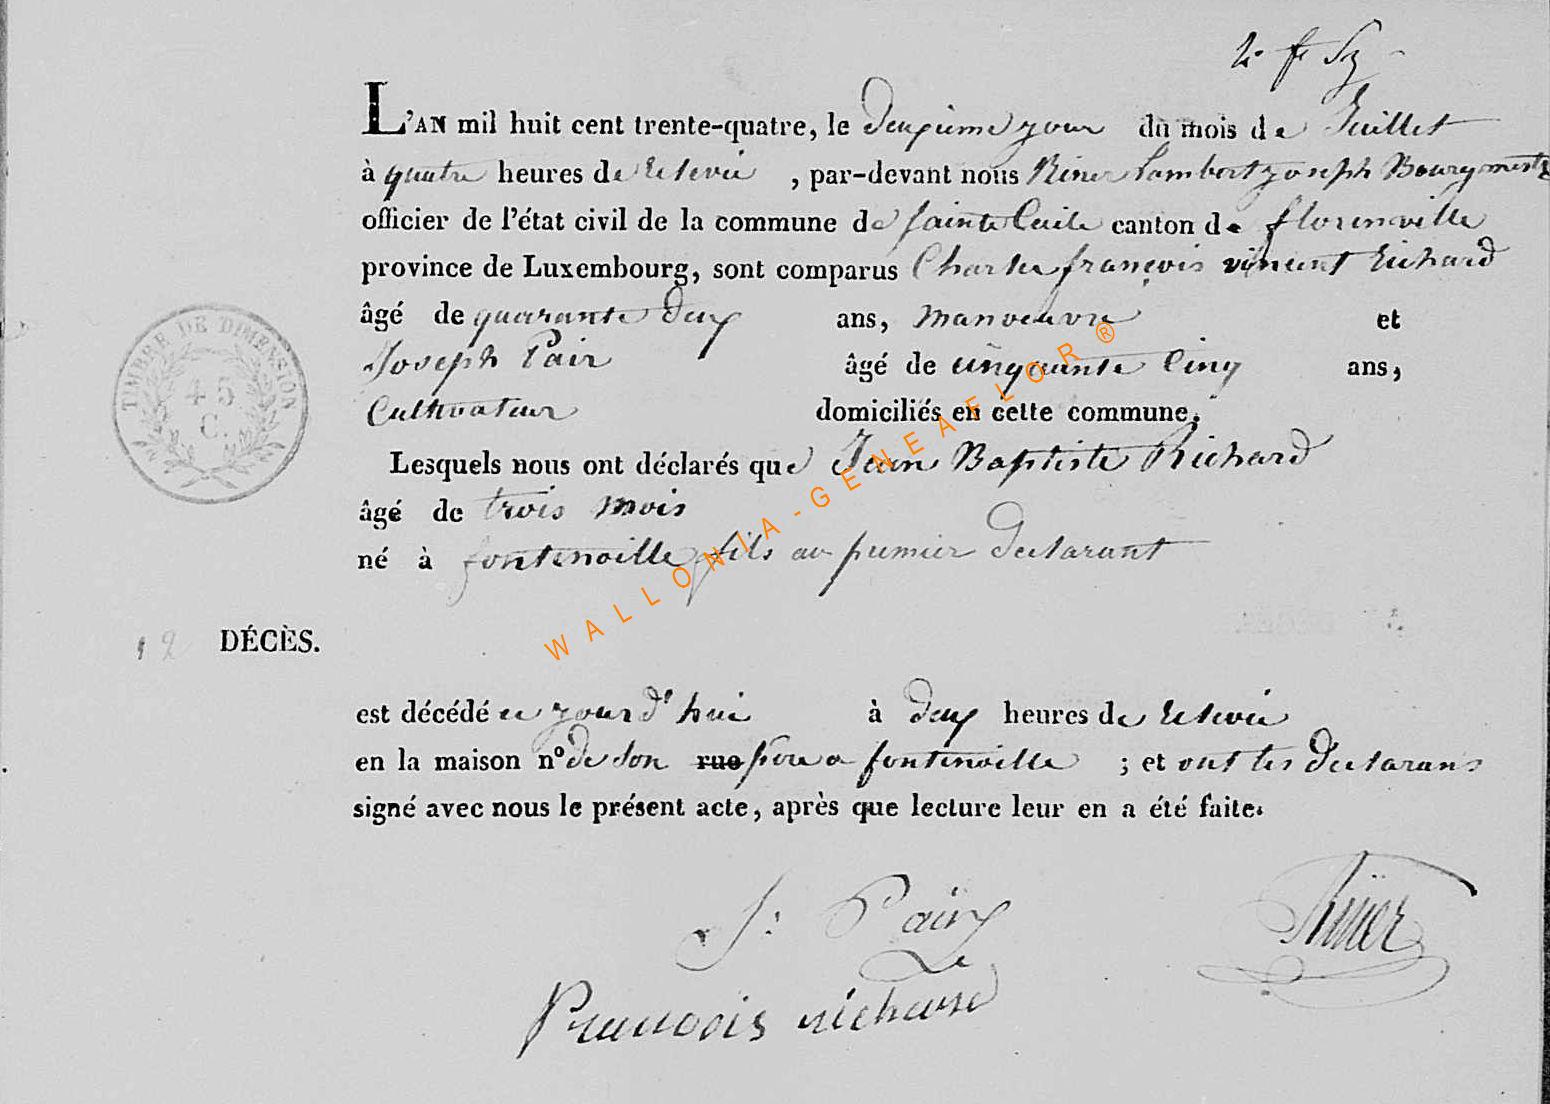 L'AN mil huit cent trente-quatre, le deuxieme jour du mois de Juillet
à quatre heures de relevée, par-devant nous Riner Lambert joseph Bourgmestre
officier de l'état civil de la commune de sainte Cecile canton de florenville
province de Luxembourg, sont comparus Charles françois vincent Richard
âgé de quarante deux ans, manoeuvre et
Joseph Pair âgé de cinquante Cinq ans,
Cultivateur domiciliés en cette commune.
Lesquels nous ont déclarés que Jean Baptiste Richard
âgé de trois mois
né à fontenoille fils au premier declarant
12 DÉCÈS.
est décédé ce jour d'hui à deux heures de relevée
en la maison n° de son rue père a fontenoille ; et ont les declarans
signé avec nous le présent acte, après que lecture leur en a été faite.
J: Pairx
Riner
Francois richard
TIMBRE DE DIMENSION
45
C.
WALLONIA-GENEAFLOR®